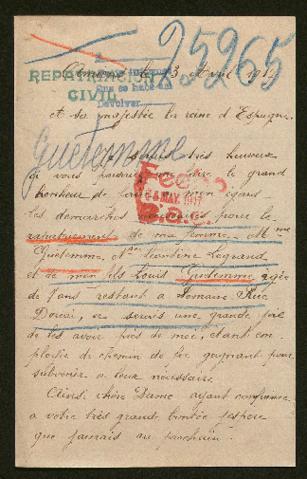 25265
REPATRIACIÓN
CIVIL
Devolver
le 3 Avril 1917
et sa majestée la reine d'Espagne.
Quetemme
très heureux
de vous le grand
bonheur de faire à mon égard
les démarches pour le
rapatriement de ma femme Mme
Quetemme, née Léontine Legrand
et de mon fils Louis Quetemme, agée
de ans restant à Somain Rue
Douai, ce serais une grande joie
de les avoir près de moi, étant em
ployée de chemin de fer gagnant pour
subvenir a leur nécessaire.
chère Dame ayant confiance
a votre très grande bontée j'espère
que j'aurais au prochain